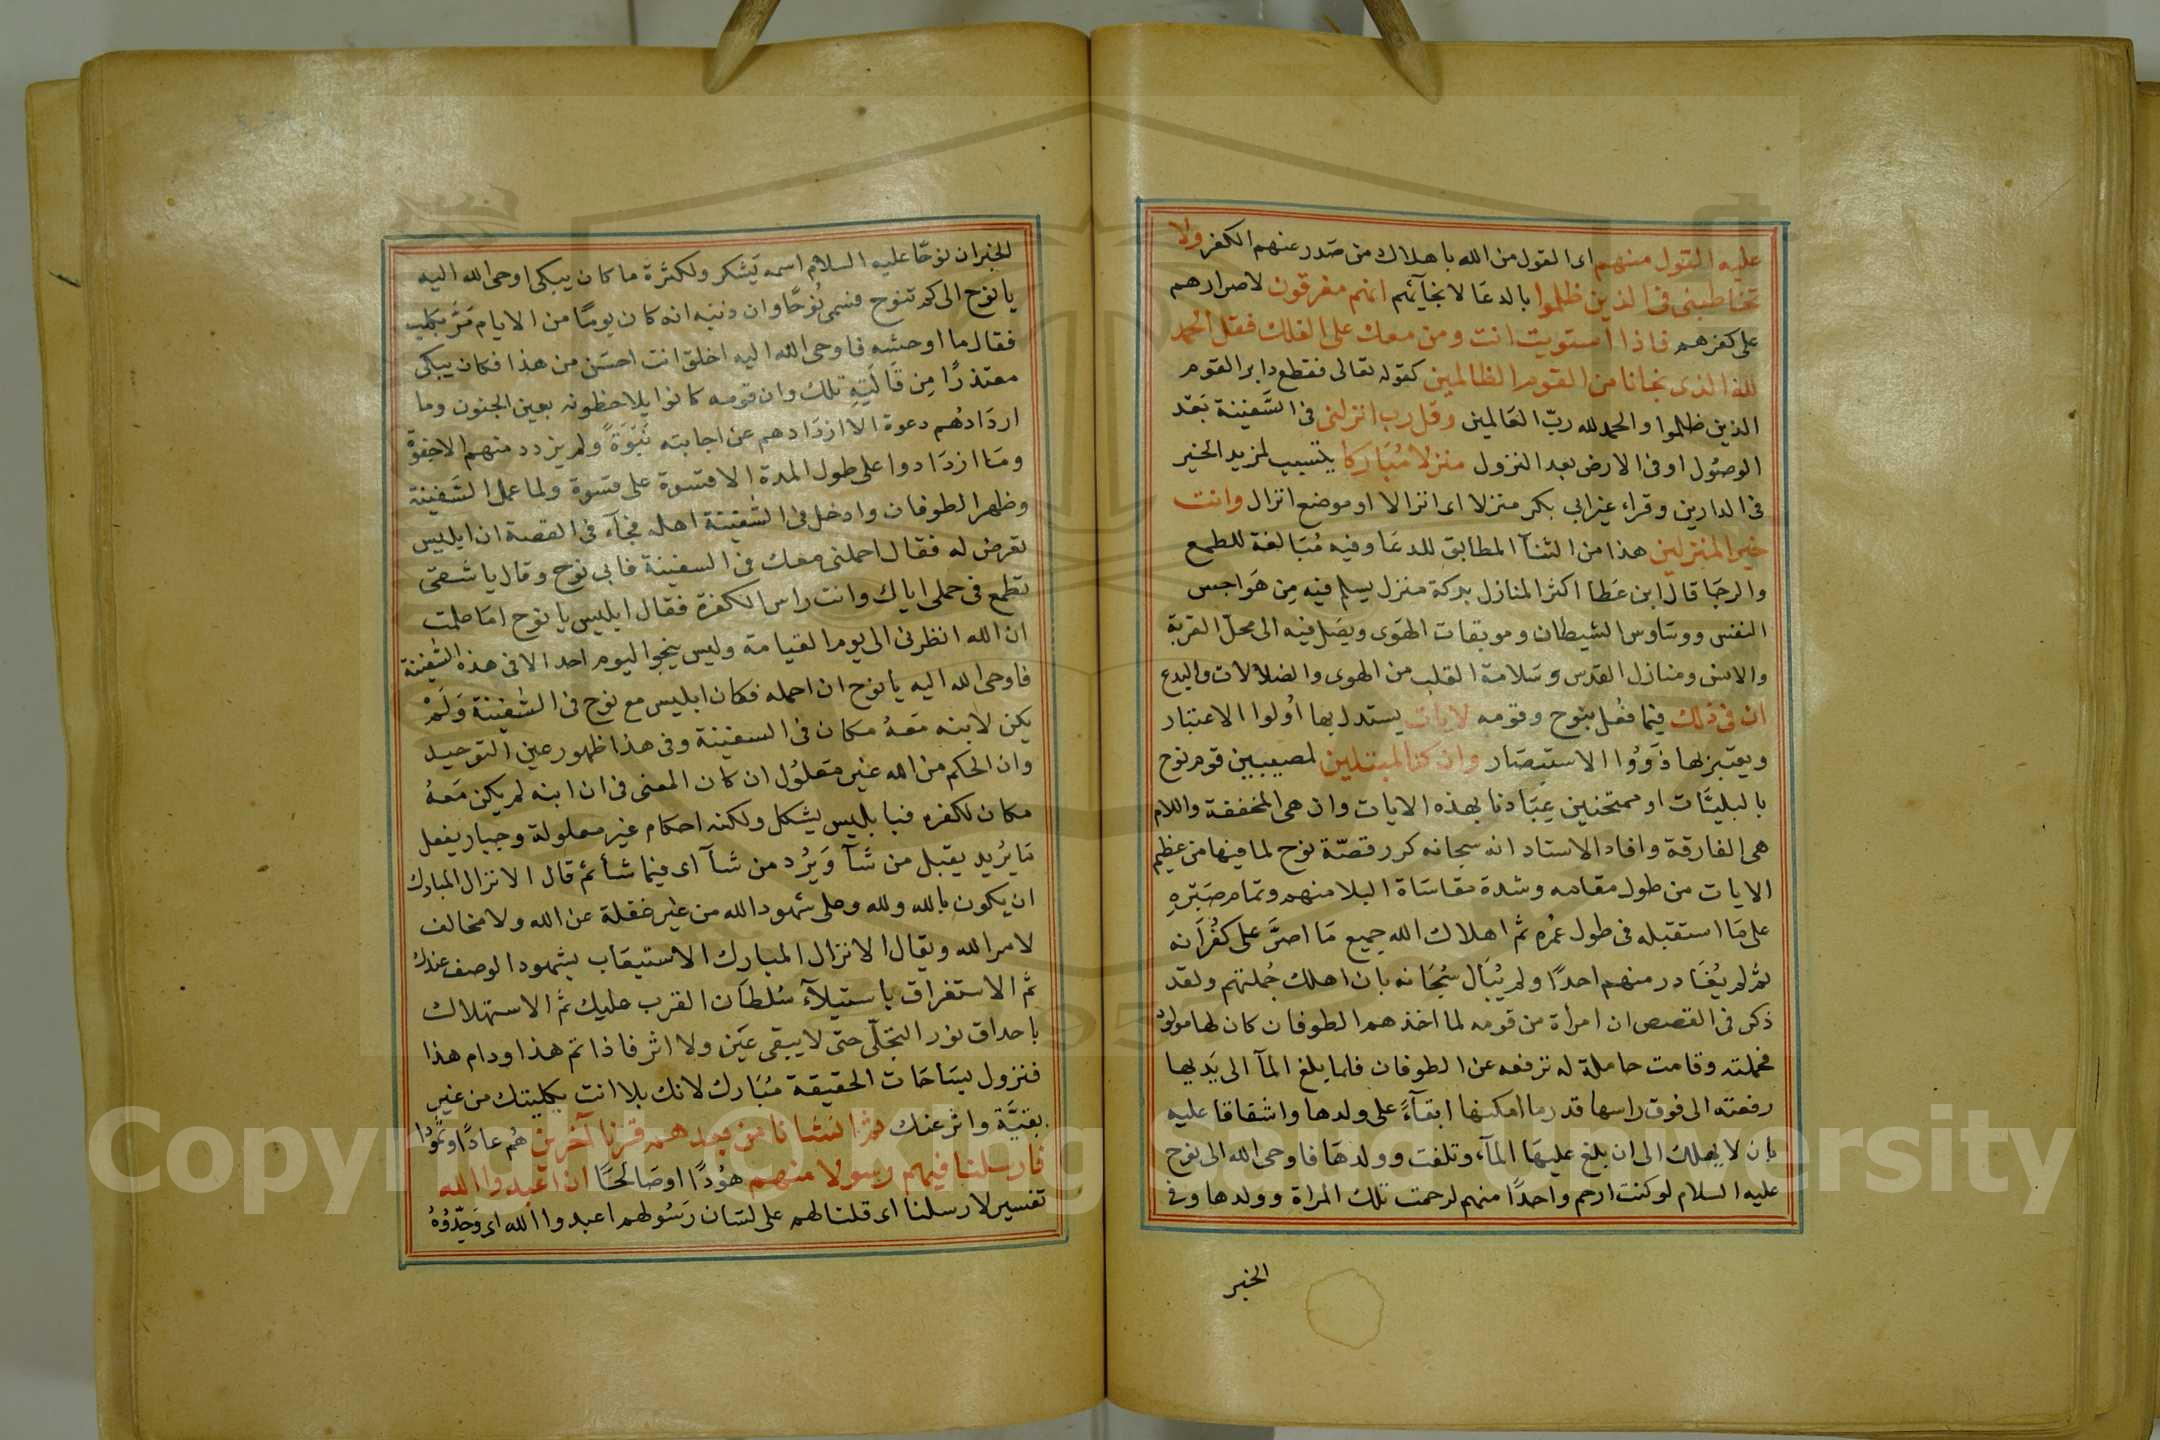 عليه القول منهم اى القول من الله باهلاك من صَدر عنهم الكفر ولا
تخاطبنى فى الذين ظلموا بالدعَا لانجآئهم انهم مغرقون لاصرارهم
على كفرهم فاذا استويت انت ومن معك على الفلك فقل الحمد
لله الذى نجانا من القوم الظالمين كقوله تعالى فقطع دابر القوم
الذين ظلموا والحمد لله ربّ العَالمين وقل رب انزلنى فى السَّفينة بَعْد
الوصُول او فى الارض بعد النزول منزلا مُبَاركا يتسبب لمزيد الخير
فى الدارين وقراء غير ابى بكر منزلا اى انزالا او موضع انزال وانت
خير المنزلين هذا من الثنآ المطابق للدعَا وفيه مُبَالغة للطمع
والرجَا قال ابن عَطا اكثر المنازل بركة منزل يسلم فيه مِن هَواجس
النفس ووسَاوس الشيطان وموبقات الهَوى ويصَل فيه الى محلّ القربة
والانس ومنازل القدس وسَلامة القلب من الهوى والضلالات والبدع
ان فى ذلك فيما فُعل بنوح وقومه لايات يستدل بها اُولوا الاعتبار
ويعتبر بها ذَوُوا الاستبصَار وان كنا لمبتلين لمصيبين قوم نوح
بالبليَّات او ممتحنين عِبَادنا بهذه الايات وان هى المخففة واللام
هى الفارقة وافاد الاستاد انه سبحانه كرر قصّة نوح لما فيها من عظيم
الايات من طول مقامه وشدة مقاسَاة البلا منهم وتمام صَبْرهِ
على مَا استقبله فى طول عُمُرهِ ثم اهلاك الله جميع مَا اصرَّ على كُفْرَانه
ثم لم يُغَادر منهم احدًا ولم يُبَال سُبْحَانه بان اهلك جُملتهم ولقد
ذكر فى القصص ان امراة من قومه لما اخذهم الطوفان كان لها مولود
فحملته وقامت حاملة له ترفعه عن الطوفان فلما بلغ المآ الى يَديها
رفعته الى فوق راسها قدر ما امكنها ابقآءً على ولدها واشفاقا عليه
بان لا يهلك الى ان بلغ عليهَا المآء وتلفت وولدهَا فاوحى الله الى نوح
عليه السلام لو كنت ارحم واحدًا منهم لرحمت تلك المراة وولدها وفى
الخبر
الخبر ان نوحًا عليه السلام اسمه يَشْكر ولكثرة ما كان يبكى اوحى الله اليه
يا نوح الى كم تنوح فسمى نُوحًا وان ذنبه انه كان يومًا من الايام مَرّ بكلب
فقال ما اوحشه فاوحى الله اليه اخلق انت احسَن من هذا فكان يبكى
معتذرًا مِن قَالَتِهِ تلك وان قومه كانوا يلاحظونه بعين الجنون وما
ازدَادهُم دعوة الا ازدَادهم عن اجابته نَبْوَةً ولم يزدد منهم الا جفوة
ومَا ازدَادوا على طول المدة الا قسوة على قسوة ولما عمل السَّفينة
وظهر الطوفان وادخل فى السَّفينة اهله فجآء فى القصة ان ابليس
تعرض له فقال احملنى معك فى السفينة فابى نوح وقال يا شقى
تطمع فى حملى اياك وانت راس الكفرة فقال ابليس يا نوح امَا علمت
ان الله انظرنى الى يوم القيامة وليس ينجوا اليوم احد الا فى هذه السَّفينة
فاوحى الله اليه يا نوح ان احمله فكان ابليس مع نوح فى السَّفينة وَلَمْ
يكن لابنه مَعَهُ مكان فى السفينة وفى هذا ظهور عين التوحيد
وان الحكم من الله غير مَعْلوُل ان كان المعنى فى ان ابنه لم يكن مَعَهُ
مكان لكفره فبابليس يشكل ولكنه احكام غير معلولة وجبار يفعل
مَا يُريد يقبل من شآ وَيرُد من شآ اى فيما شأ ثم قال الانزال المبارك
ان يكون بالله ولله وعلى شهود الله من غير غفلة عن الله ولا مخالف
لامر الله ويقال الانزال المبارك الاستيعَاب بشهود الوصف عندك
ثم الاستغراق باستيلآء سُلطَان القرب عليك ثم الاستهلاك
باحداق نور التجلّى حتى لا يبقى عَين ولا اثر فاذا تم هذا ودام هذا
فنزول بسَاحَات الحقيقة مُبَارك لانك بلا انت بكليتك من غير
بقيَّة واثر عنك ثم انشانا من بعدهم قرنا آخرين هُم عادًا وثمُودا
فارسلنا فيهم رسولا منهم هوُدًا او صَالحًا ان اعبدوا الله
تفسير لارسلنا اى قلنا لهم على لسَان رَسُولهم اعبدوا الله اى وَحِّدُوُهُ
Copyright © King Saud University